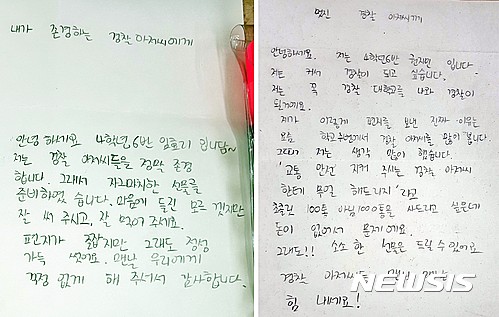 내가 존경하는 경찰 아저씨에게
안녕하세요 4학년6반 입니담~
저는 경찰 아저씨들을 정말 존경
합니다. 그래서 자그마치한 선물을
준비하였습니다. 마음에 들진 모르겠지만
잘 써 주시고, 잘 먹어 주세요.
편지가 좁지만 그래도 정성
가득 썼어요. 맨날 우리에게
걱정 없게 해 주셔서 감사합니다.
멋진 경찰 아저씨께
안녕하세요. 저는 4학년6반 권지민 입니다.
저는 커서 경찰이 되고 싶습니다.
저는 꼭 경찰 대학교를 나와 경찰이
될거에요.
제가 이렇게 편지를 보낸 진짜 이유는
요즘 학교주변에서 경찰 아저씨를 많이 봅니다.
그때마다 저는 생각 많이 했습니다.
'교통 안전 지켜 주시는 경찰 아저씨
한테 무얼 해드리지'라고
초콜릿 100통 아님 1000통을 사드리고 싶은데
돈이 없어서 문제에요.
그래도!! 소소한 선물은 드릴 수 있어요
경찰 아저씨
힘 내세요!
NEWSIS